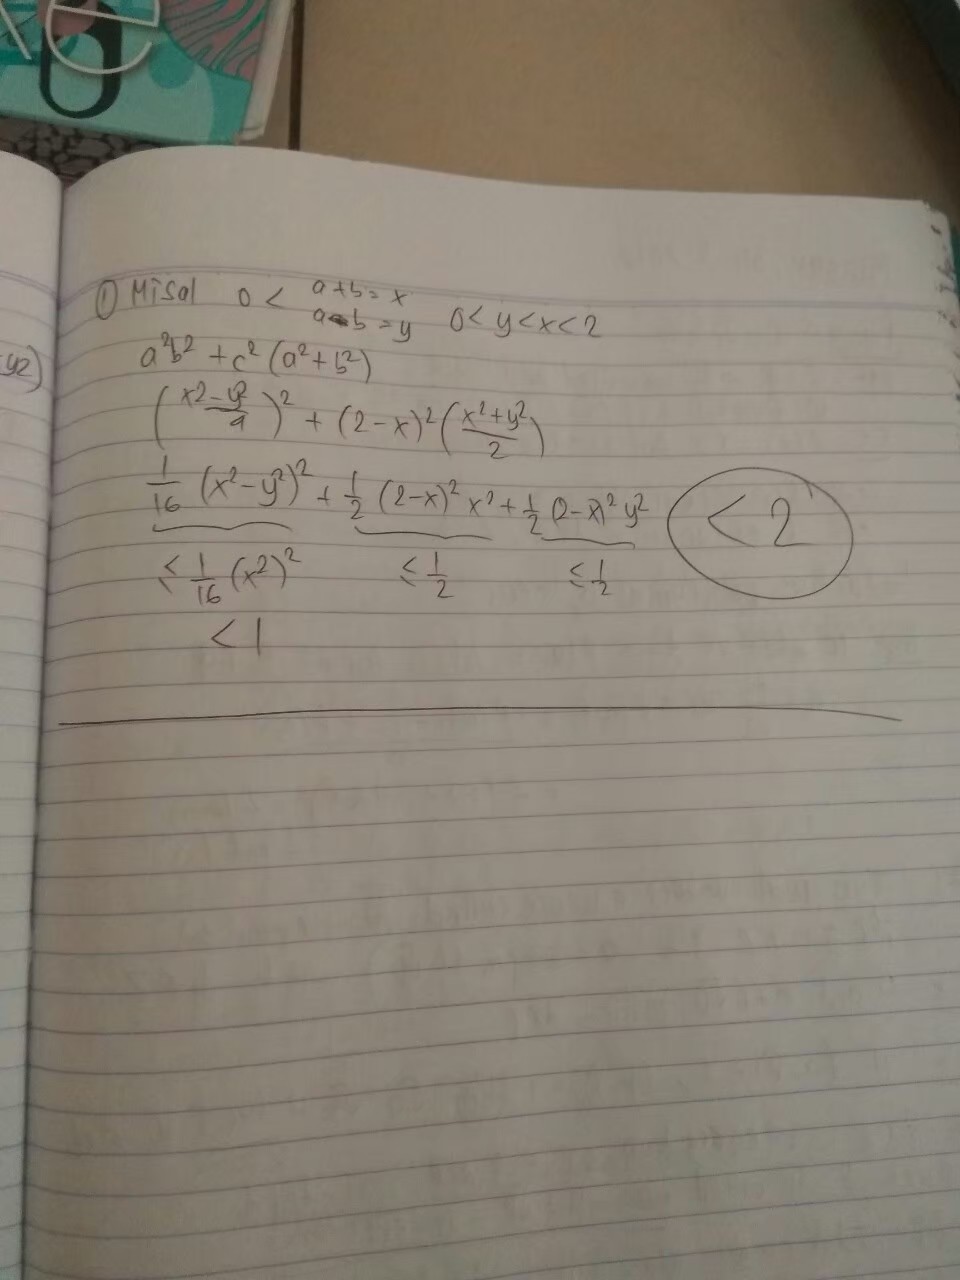 ① Misal 0 < a+b=x
a-b=y 0<y<x<2
a²b² + c² (a²+b²)
(x2-y²/4)² + (2-x)² (x²+y²/2)
1/16 (x²-y²)² + 1/2 (2-x)² x² + 1/2 (2-x)² y² < 2
≤ 1/16 (x²)² ≤ 1/2 ≤ 1/2
< 1
y2)